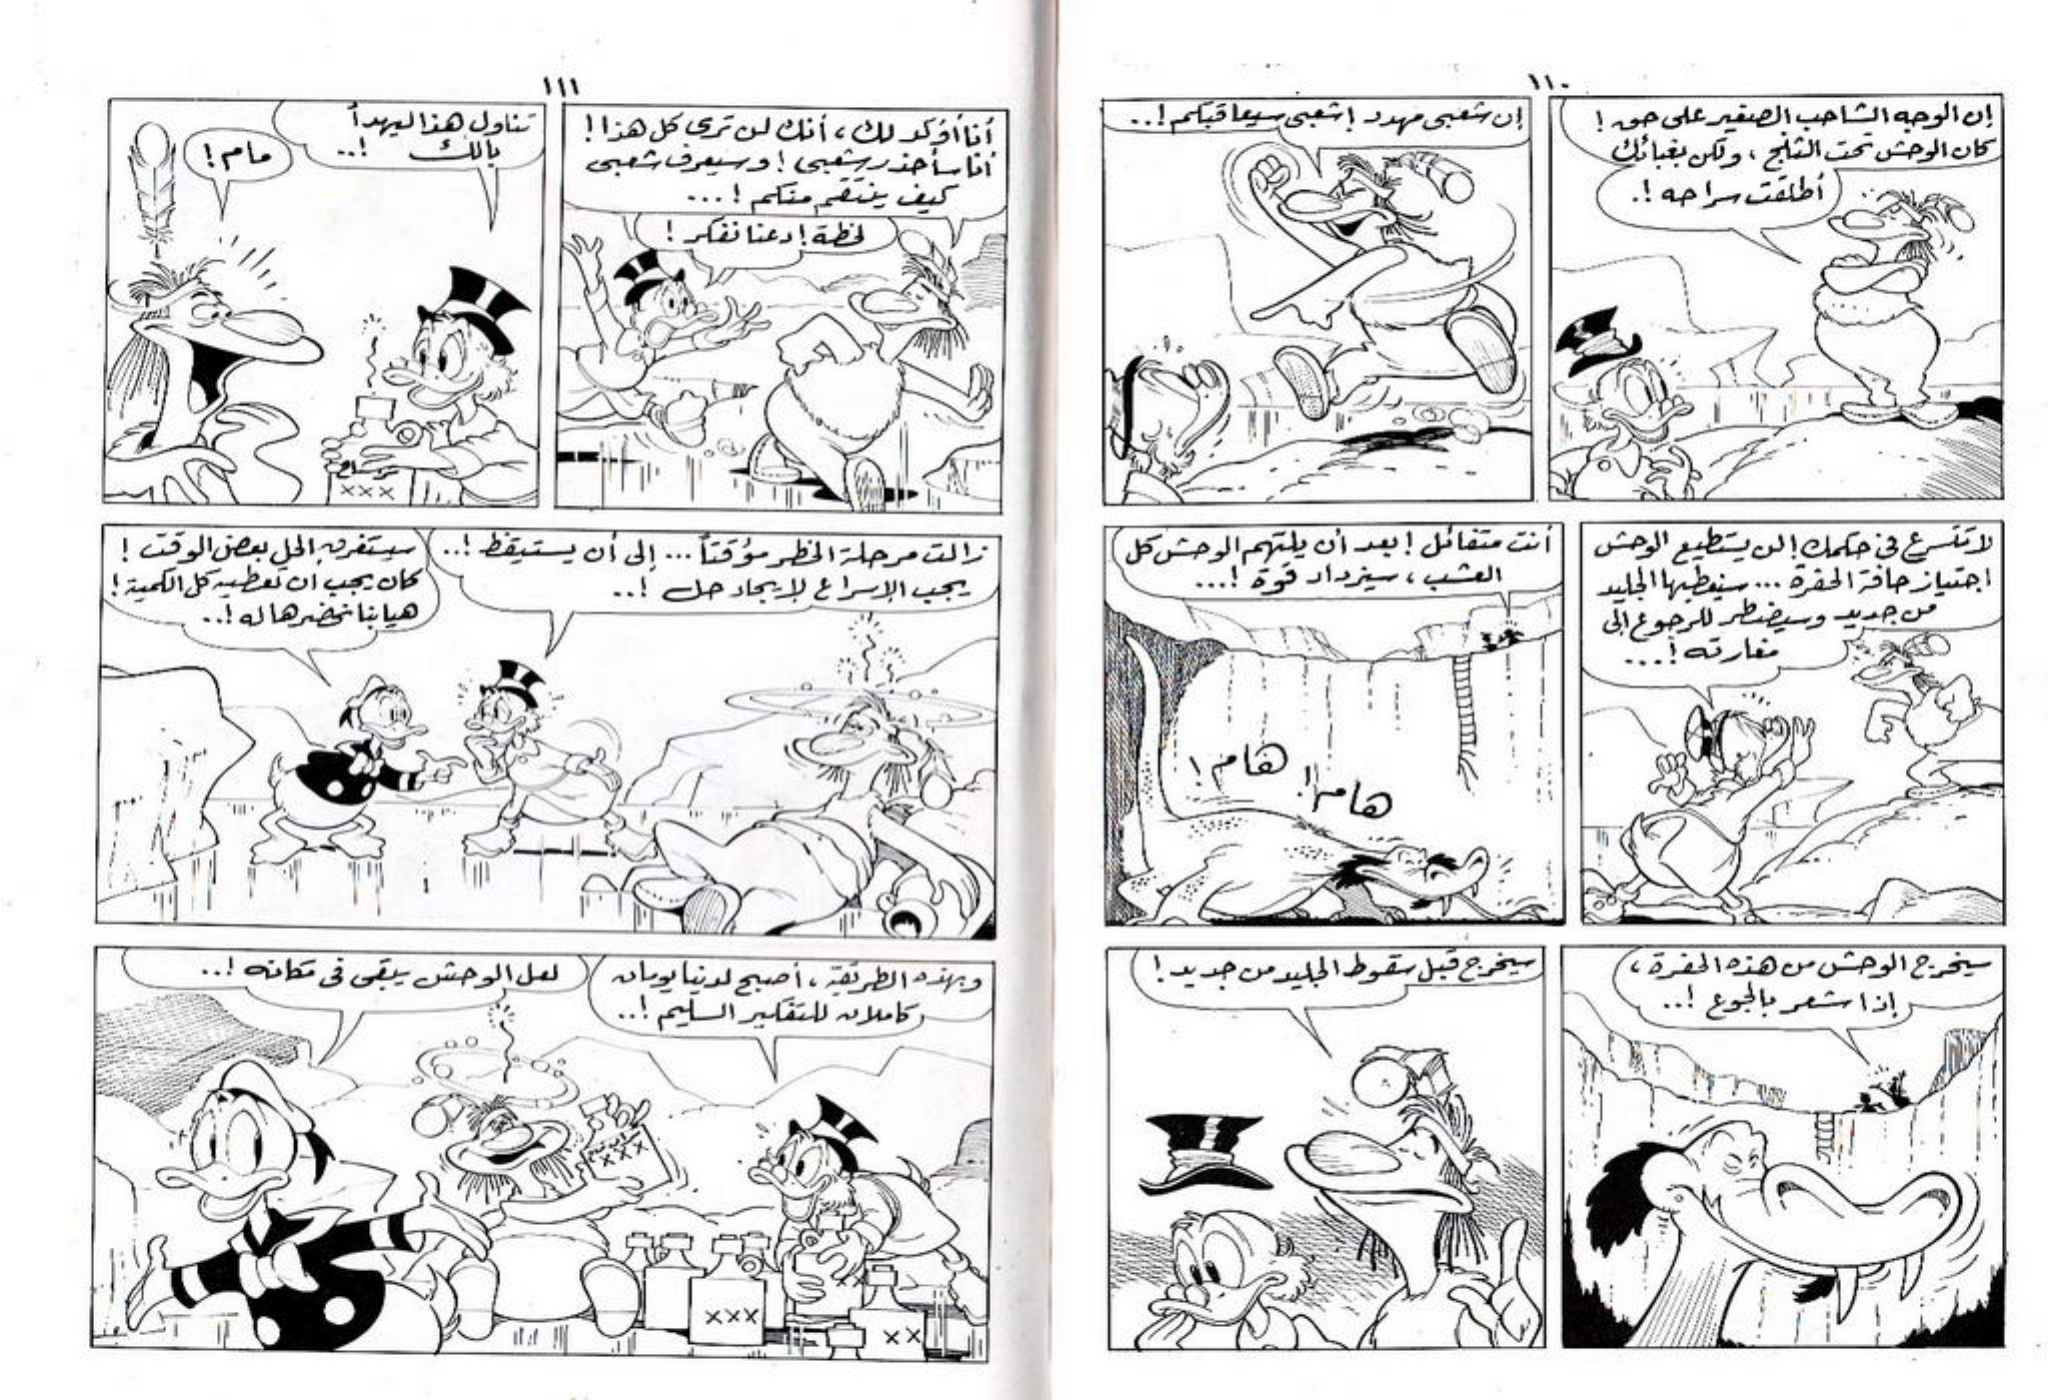 ١١٠
إن الوجه الشاحب الصغير على حق !
كان الوحش تحت الثلج ، ولكن بغبائك
أطلقت سراحه !.
إن شعبى مهدد ! شعبى سيعاقبكم !..
لا تتسرع فى حكمك ! لن يستطيع الوحش
اجتياز حافة الحفرة ... سيغطيها الجليد
من جديد وسيضطر للرجوع إلى
مغارته !...
أنت متفائل ! بعد أن يلتهم الوحش كل
العشب ، سيزداد قوة !...
هام !
هام !
سيخرج الوحش من هذه الحفرة ،
إذا شعر بالجوع !..
سيخرج قبل سقوط الجليد من جديد !
١١١
أنا أؤكد لك ، أنك لن ترى كل هذا !
أنا سأحذر شعبى ! وسيعرف شعبى
كيف ينتقم منكم !...
لحظة ! دعنا نفكر !
تناول هذا ليهدأ
بالك !..
مام !
XXX
زالت مرحلة الخطر مؤقتاً ... إلى أن يستيقظ !..
يجب الإسراع لإيجاد حل !..
سيستغرق الحل بعض الوقت !
كان يجب أن نعطيه كل الكمية !
هيا بنا نحضرها له !..
وبهذه الطريقة ، أصبح لدينا يومان
كاملان للتفكير السليم !..
لعل الوحش يبقى فى مكانه !..
XXX
XXX
XX